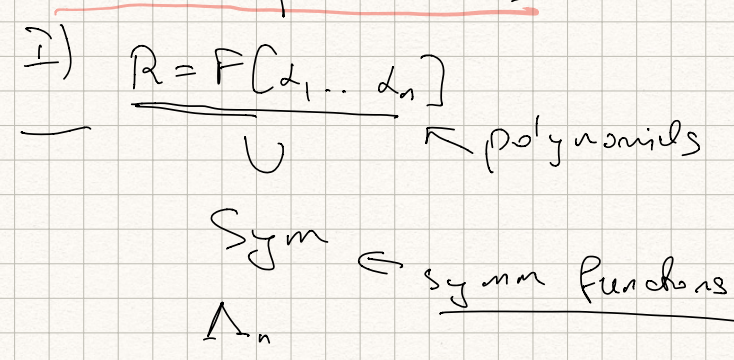 I) R = F[α₁.. αₙ]
∪ ← polynomials
Sym ← symm functions
Λₙ